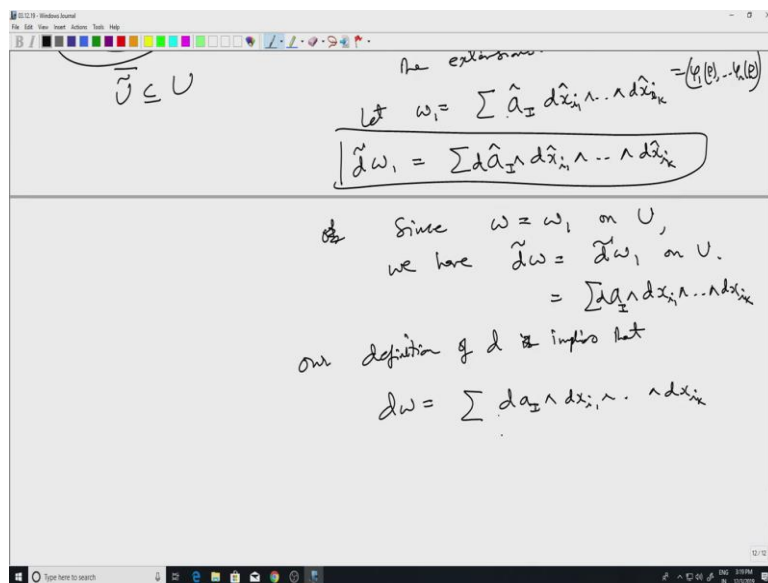 03.12.19 - Windows Journal
File Edit View Insert Actions Tools Help
B I
the extension.
Ũ ⊆ U
= (φ₁(p), ... φₙ(p))
Let ω₁ = ∑ â_I dx̂_{i₁} ∧ .. ∧ dx̂_{iₖ}
d̃ω₁ = ∑ dâ_I ∧ dx̂_{i₁} ∧ .. ∧ dx̂_{iₖ}
Since ω = ω₁ on U,
we have d̃ω = d̃ω₁ on U.
= ∑ da_I ∧ dx_{i₁} ∧ .. ∧ dx_{iₖ}
our definition of d implies that
dω = ∑ da_I ∧ dx_{i₁} ∧ . . ∧ dx_{iₖ}
12/12
Type here to search
ENG 3:19 PM
IN 12/3/2019